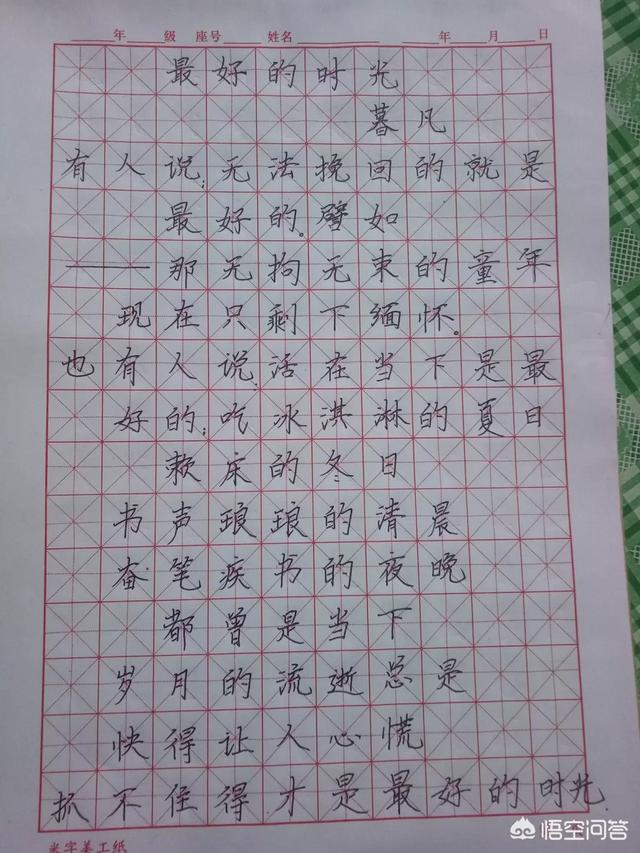 年 级 座号 姓名 年 月 日
最好的时光
暮凡
有人说;无法挽回的就是
最好的。譬如
——那无拘无束的童年
现在只剩下缅怀。
也有人说活在当下是最
好的;吃冰淇淋的夏日
赖床的冬日
书声琅琅的清晨
奋笔疾书的夜晚
都曾是当下
岁月的流逝总是
快得让人心慌
抓不住得才是最好的时光.
米字美工纸
悟空问答